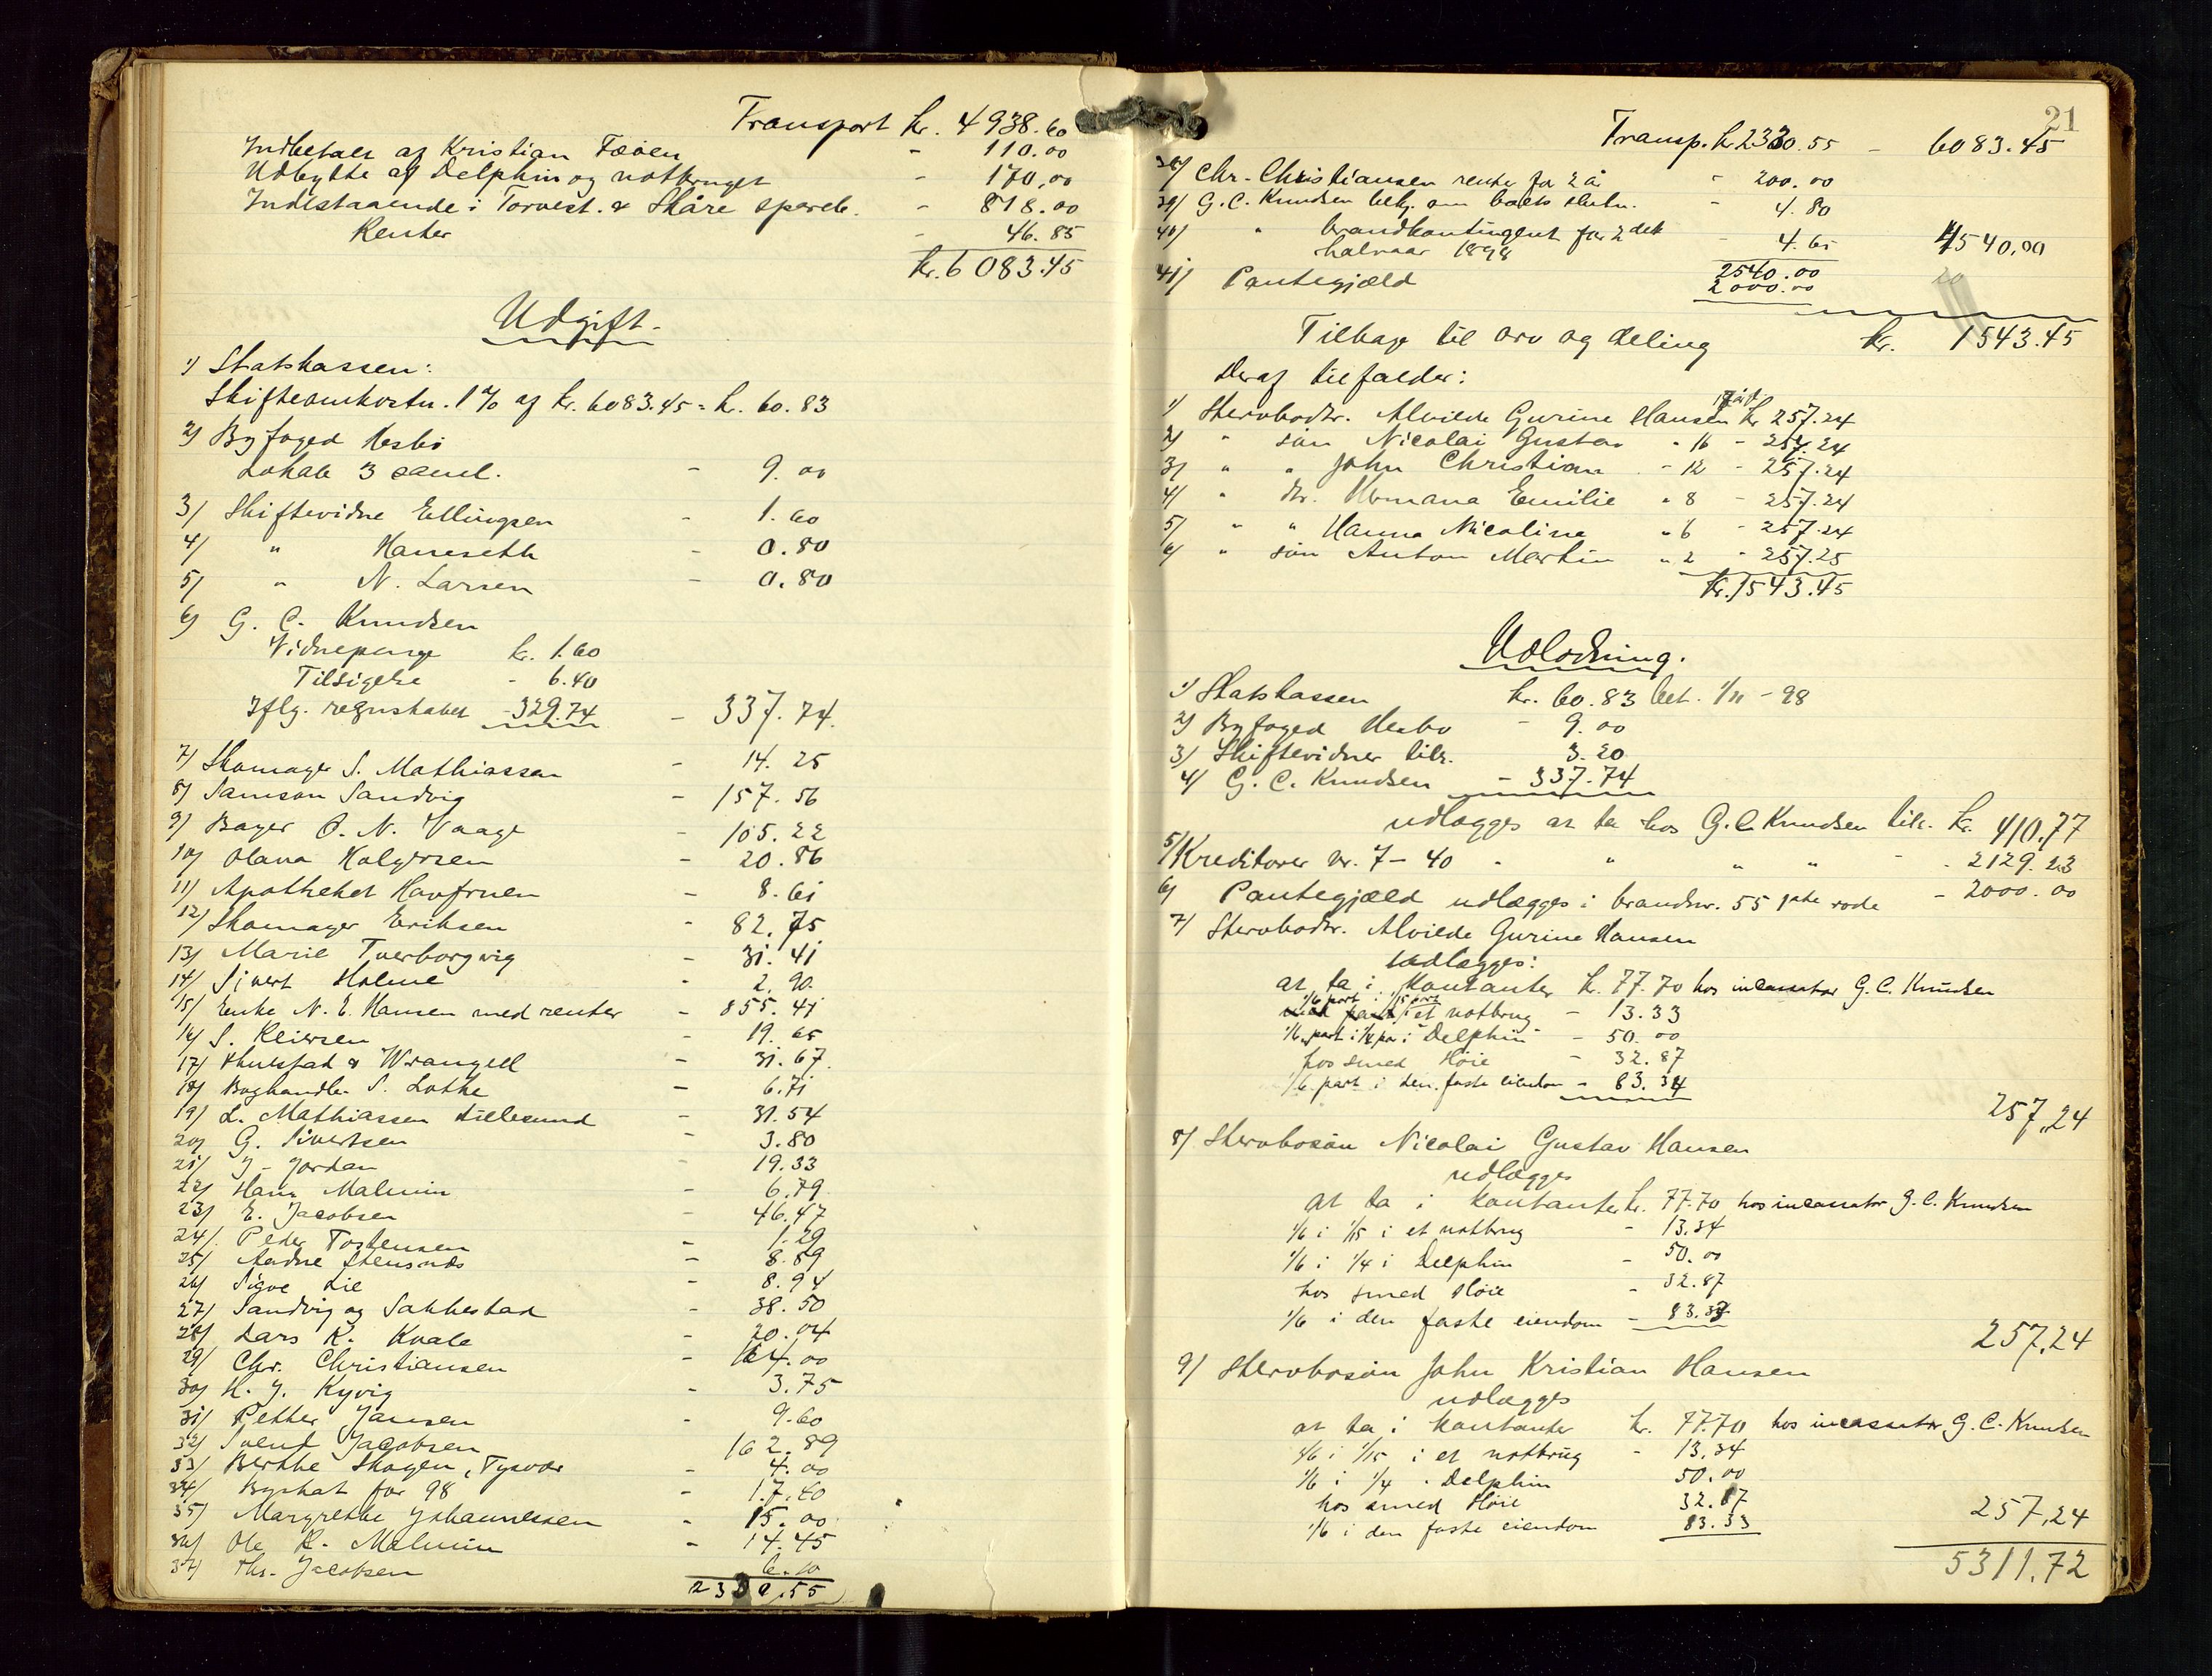 Transport kr. 4938.60
Indbetalt af Kristian Fæøen - 110.00
Udbytte af Delphin og notbruget - 170.00
Indestaaende i Torvest. & Skåre spareb. - 818.00
Renter - 46.85
kr. 6083.45
Udgift.
1) Statskassen:
Skifteomkostn. 1% af kr. 6083.45 = kr. 60.83
2) Byfoged Hesbø
Lokale 3 saml. - 9.00
3) Skiftevidne Ellingsen - 1.60
4) " Haneseth - 0.80
5) " N. Larsen - 0.80
6) G. C. Knudsen
Vidnepenge kr. 1.60
Tilsigelse - 6.40
Iflg. regnskabet - 329.74 - 337.74.
7) Skomager S. Mathiassen - 14.25
8) Samson Sandvig - 157.56
9) Bager O. N. Vaage - 105.22
10) Olava Holgersen - 20.86
11) Apotheket Havfruen - 8.61
12) Skomager Eriksen - 82.75
13) Marie Tverborgvig - 31.41
14) Sivert Holme - 2.90.
15) Enke N. E. Hansen med renter - 855.41
16) S. Reiersen - 19.65
17) Hulstad & Wrangell - 31.67.
18) Boghandler S. Lothe - 6.71
19) L. Mathiassen Lillesund - 31.54
20) G. Sivertsen - 3.80
21) J. Jordan - 19.33
22) Hans Malmin - 6.79
23) E. Jacobsen - 46.47
24) Peder Tostensen - 1.29
25) Aadne Stensnæs - 8.89
26) Sigve Lie - 8.94
27) Sandvig og Sakkestad - 38.50
28) Lars K. Kvale - 20.04
29) Chr. Christiansen - 164.00
30) H. J. Kyvig - 3.75
31) Petter Jansen - 9.60
32) Svend Jacobsen 162.89
33) Berthe Skogen, Tysvær - 4.00
34) Byskat for 98 - 17.60
35) Margrethe Johannessen - 15.00
36) Ole R. Malmin - 14.45
37) Ths. Jacobsen 6.10
2330.55
21
Transp. kr 2330.55 - 6083.45
38) Chr. Christiansen rente for 2 år - 200.00
39) G. C. Knudsen bekj. om boets slutn. - 4.80
40) " brandkontingent for 2det
halvaar 1898 - 4.65 4540.00
2540.00
41) Pantegjæld 2000.00
Tilbage til arv og deling kr. 1543.45
Deraf tilfalder:
1) Stervbodtr. Alvilde Gurine Hansen 17 år kr 257.24
2) " søn Nicolai Gustav " 16 - 257.24
3) " " John Christian - 12 - 257.24
4) " dtr. Hermana Emilie " 8 - 257.24
5) " " Hanna Nicoline " 6 - 257.24
6) " søn Anton Martin " 2 - 257.25
kr. 1543.45
Udlodning.
1) Statskassen kr. 60.83 bet. 1/11 - 98
2) Byfoged Hesbø - 9.00
3) Skiftevidner tils. 3.20
4) G. C. Knudsen - 337.74
udlægges at ta hos G. C. Knudsen tils. kr. 410.77
5) Kreditorer nr. 7 - 40 " " " " - 2129.23
6) Pantegjæld udlægges i brandnr. 55 1ste rode - 2000.00
7) Stervbodtr. Alvilde Gurine Hansen
udlægges:
at ta i kontanter kr. 77.70 hos incassator G. C. Knudsen
1/6 part i 1/15 part i et notbrug - 13.33
1/6 part i 1/4 pa i Delphin - 50.00
hos smed Høie - 32.87
1/6 part i den faste eiendom - 83.34
257.24
8) Stervbosøn Nicolai Gustav Hansen
udlægges
at ta i kontanter kr. 77.70 hos incassator G. C. Knudsen
1/6 i 1/15 i et notbrug - 13.34
1/6 i 1/4 i Delphin - 50.00
hos smed Høie - 32.87
1/6 i den faste eiendom - 83.33
257.24
9) Stervbosøn John Kristian Hansen
udlægges
at ta i kontanter kr. 77.70 hos incassator G. C. Knudsen
1/6 i 1/15 i et notbrug - 13.34
1/6 i 1/4 - Delphin 50.00
hos smed Høie 32.87
1/6 i den faste eiendom 83.33 257.24
5311.72